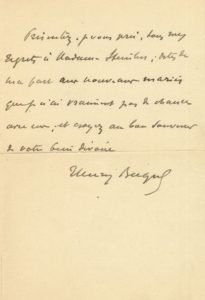 Présentez, je vous prie, tous mes
regrets à Madame ; dites de
ma part aux nouveaux mariés
que je n'ai vraiment pas de chance
avec eux, et croyez au bon souvenir
de votre bien
Henry